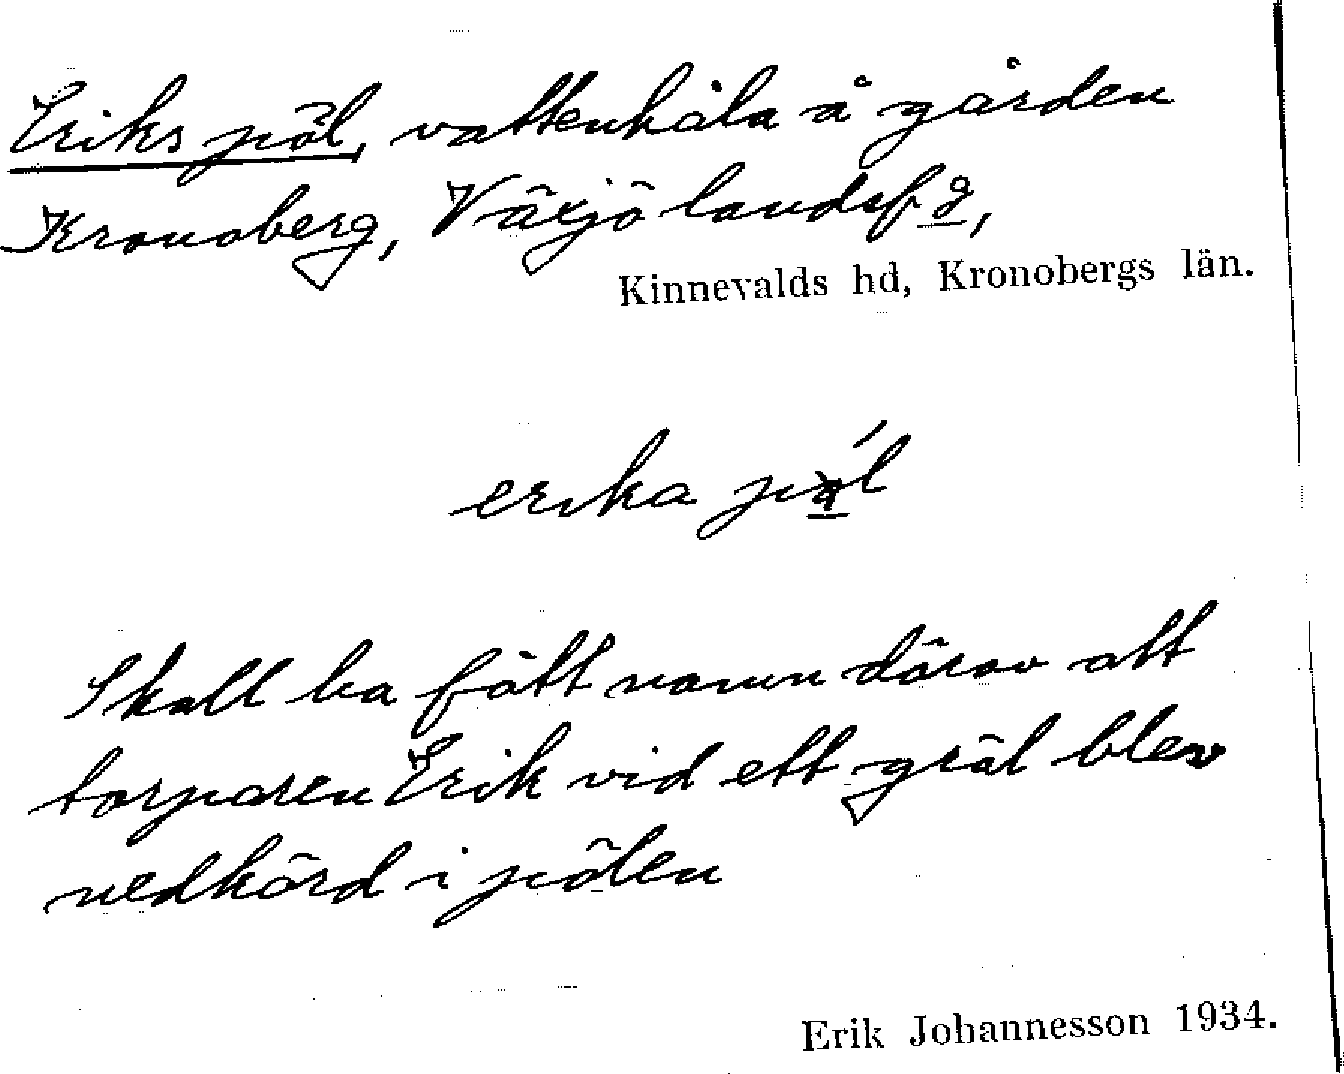 Eriks pöl, vattenhåla å gården
Kronoberg, Växjö landsfg,
Kinnevalds hd, Kronobergs län.
erika
Skall ha fått namn därav att
torparen Erik vid ett gräl blev
nedkörd i pölen
Erik Johannesson 1934.